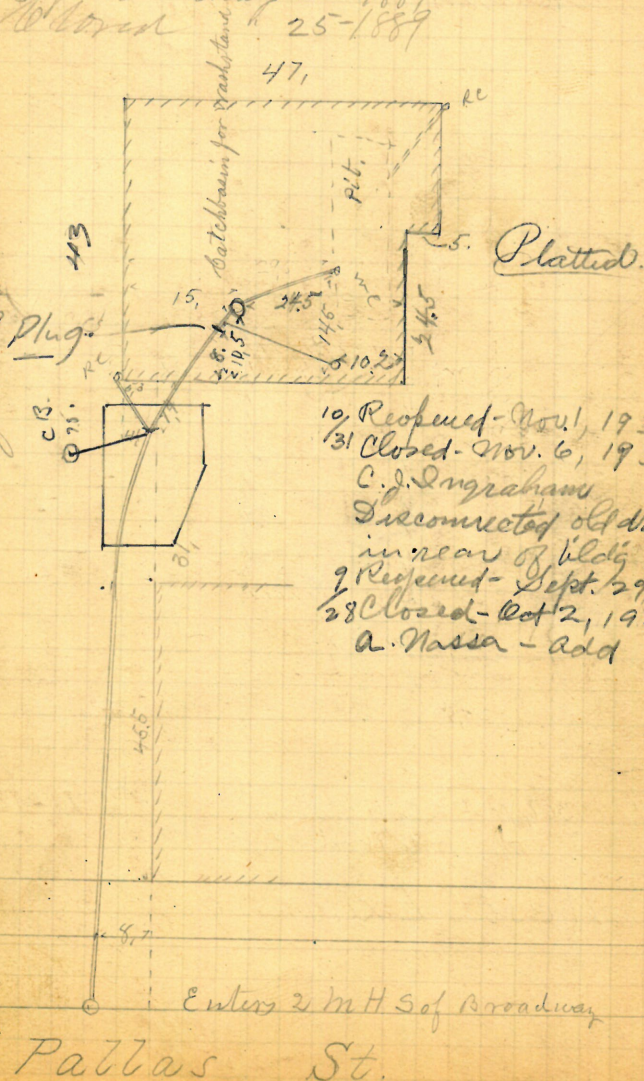 Closed 25-1889
47,
RC
Catchbasin for Washstand
Pit.
43
5.
Platted.
15,
24.5
24.5
W C
14.5
Plug.
8.
10.5
10.2
RC
C B.
75.
10/31 Reopened - Nov. 1, 19
Closed - Nov. 6, 19
C. J. Ingraham
Disconnected old d.
in rear of bldg
9/28 Reopened - Sept. 29
Closed - Oct 2, 19
a. Nassa - add
31,
46.5
8,
Enters 2 M H S of Broadway
Pallas St.